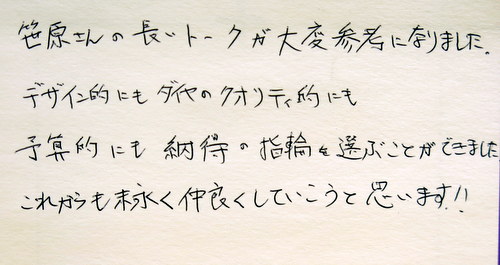 笹原さんの長いトークが大変参考になりました。
デザイン的にもダイヤのクオリティ的にも
予算的にも納得の指輪を選ぶことができました
これからも末永く仲良くしていこうと思います!!